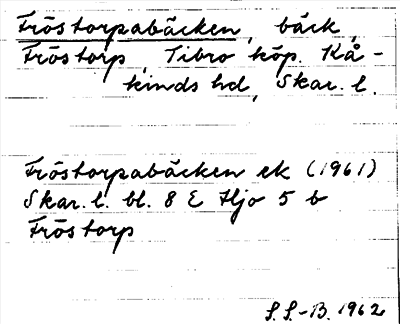 Fröstorpabäcken, bäck,
Fröstorp, Tibro köp. Kå-
kinds hd, Skar. l.
Fröstorpabäcken ek (1961)
Skar. l. bl. 8 E Hjo 5 b
Fröstorp
S.S.-B. 1962